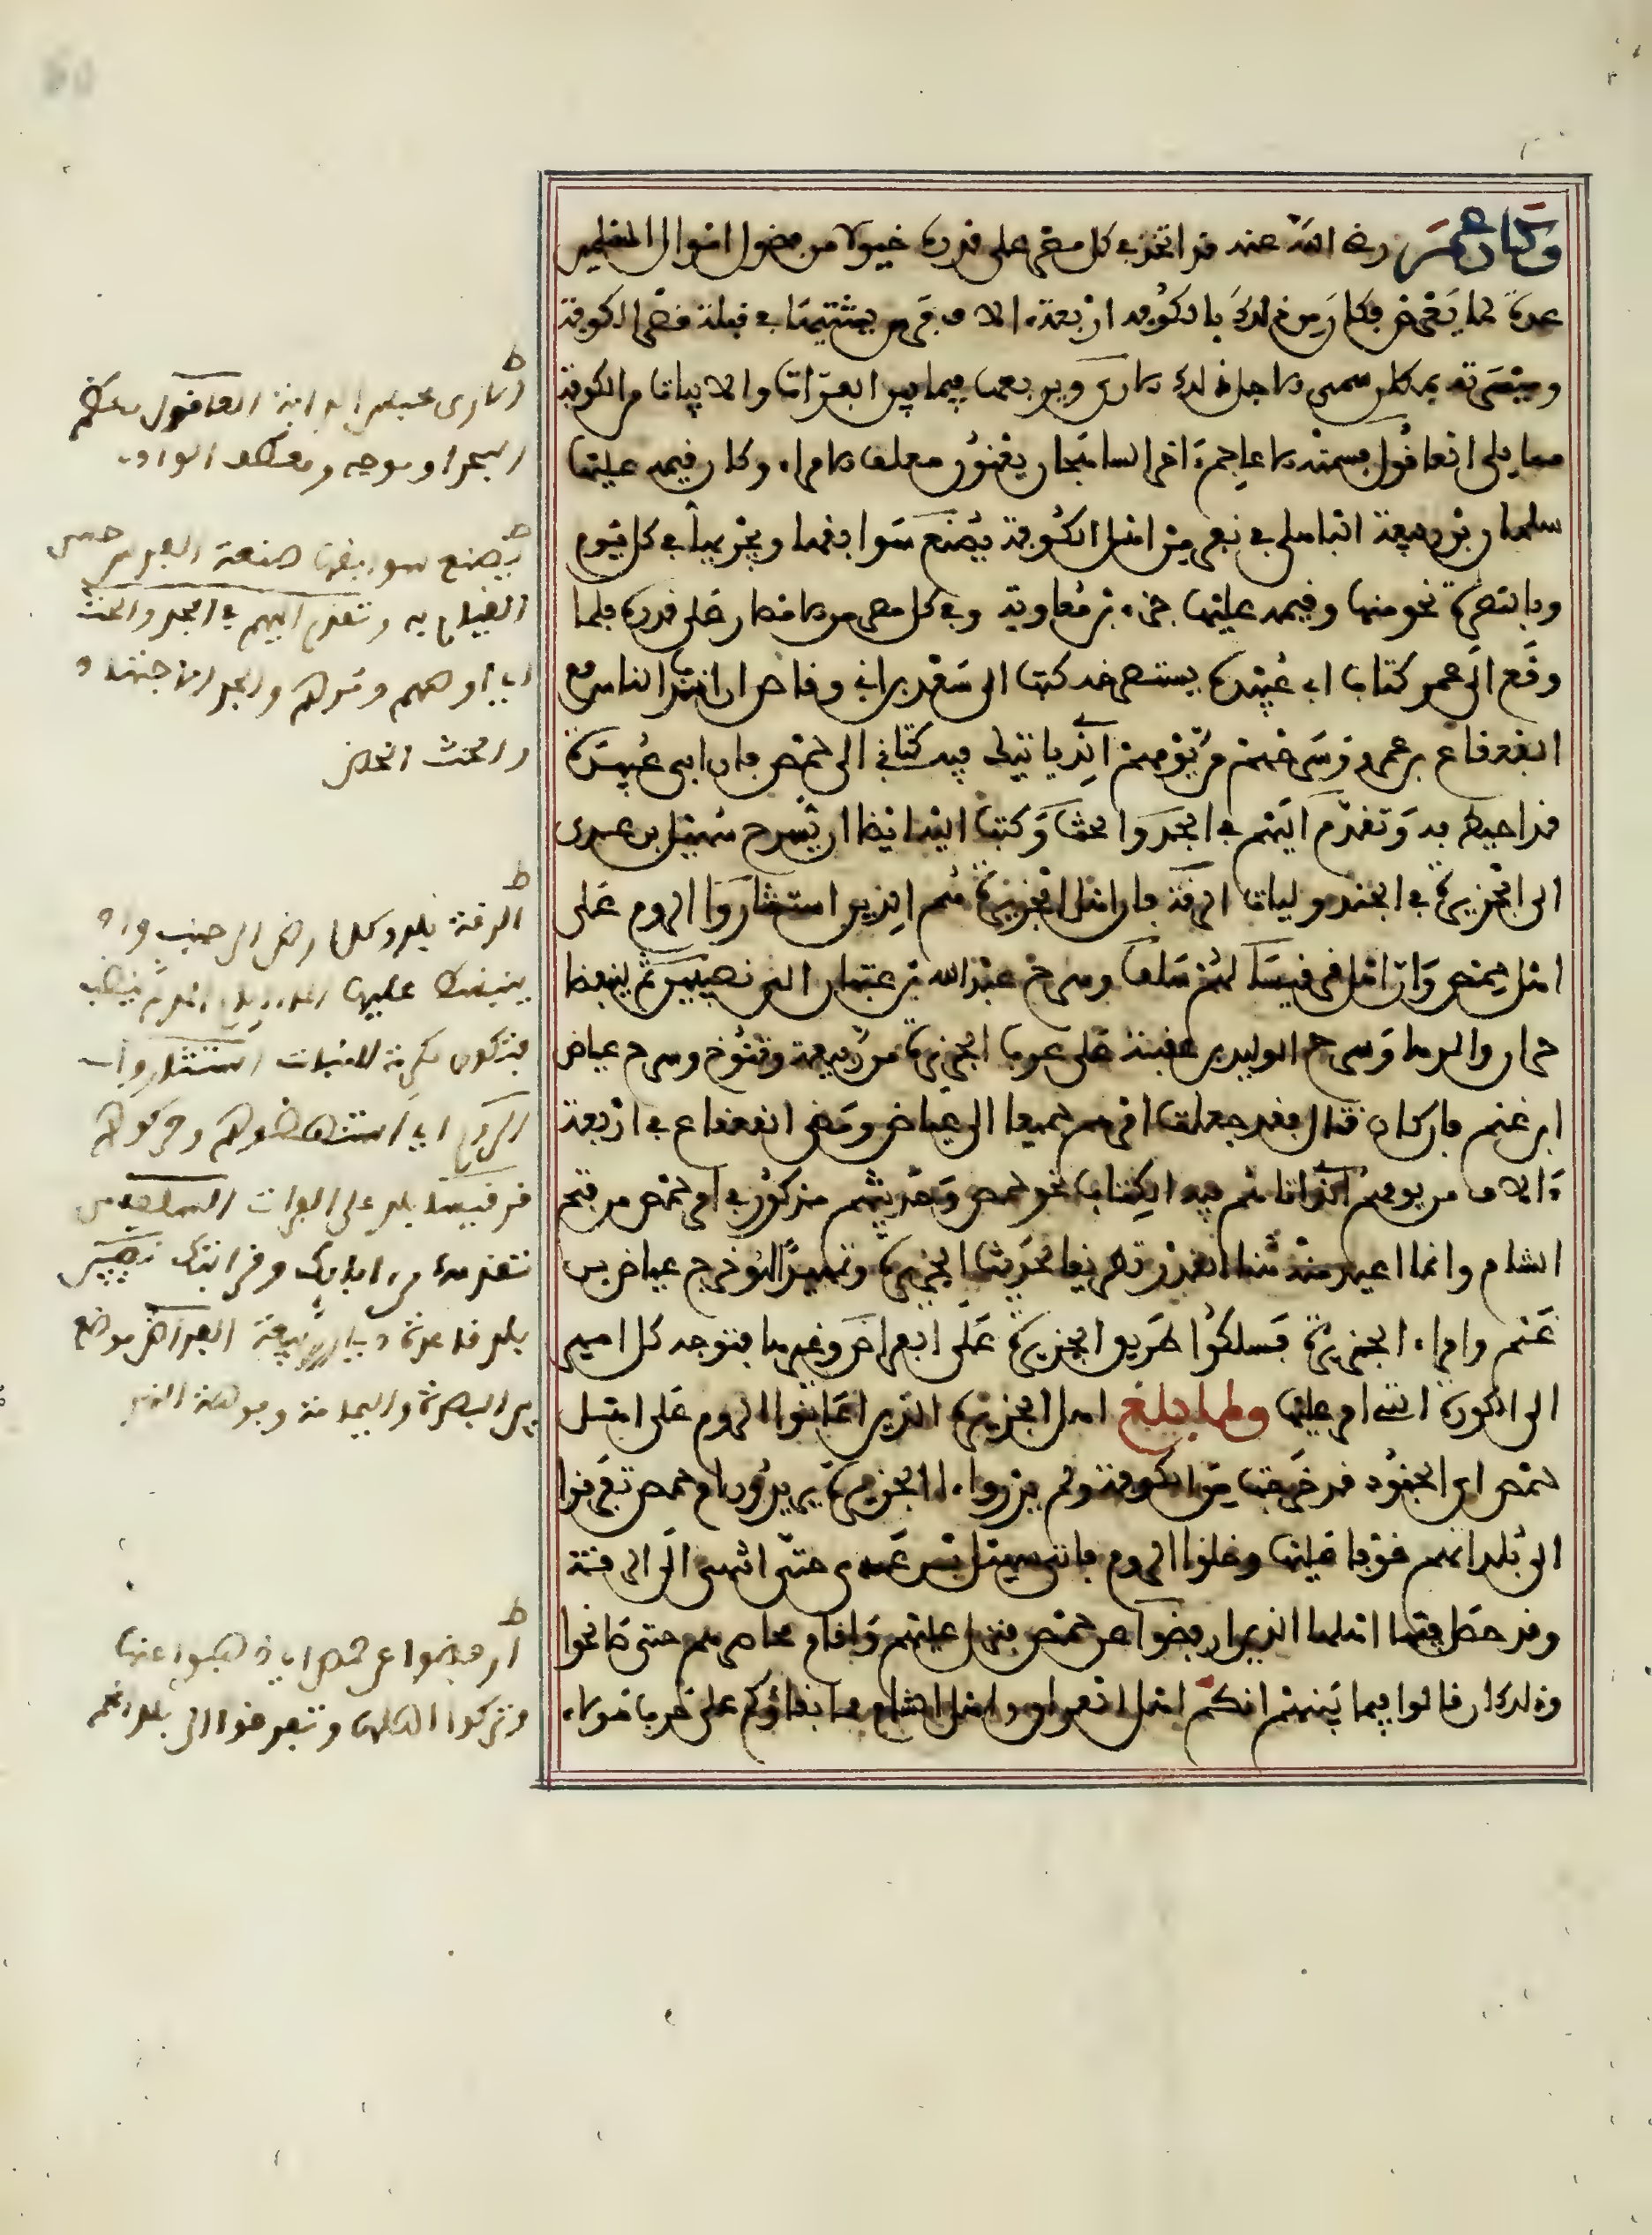 وكان عمر رضي الله عنه قد اتخذ في كل مصر على قدره خيولا من فضول اموال المسلمين
عدة لما يعرض فكان من ذلك بالكوفة اربعة ءالاف فرس يشتيها في قبلة قصر الكوفة
وميسرته ومن اجل ذلك يسمى الاري ويربعها فيما بين الفرات والابيات من الكوفة
مما يلي العاقول فسمته الاعاجم ءاخر الشاهجان يعنون معلف الامراء وكان قيمه عليها
سلمان بن ربيعة الباهلي في نفر من اهل الكوفة يصنع سوابقها ويجريها في كل يوم
وبالبصرة نحو منها وقيمه عليها جزء بن معاوية وفي كل مصر من الامصار على قدره فلما
وقع الى عمر كتاب ابي عبيدة يستصرخه كتب الى سعد بن ابي وقاص ان اندب الناس مع
القعقاع بن عمرو وسرحهم من يومهم الذي ياتيك فيه كتابي الى حمص فان ابي عبيدة
قد احيط به وتقدم اليهم في الجد والحث وكتب اليه ايضا ان يسرح سهيل بن عدي
الى الجزيرة في الجند وليات الرقة فان اهل الجزيرة هم الذين استثاروا الروم على
اهل حمص وان اهل قرقيسيا لهم سلف وسرح عبد الله بن عتبان الى نصيبين ثم لينفضا
حران والرها وسرح الوليد بن عقبة على عرب الجزيرة من ربيعة وتنوخ وسرح عياض
ابن غنم فان كان قتال فقد جعلت امرهم جميعا الى عياض ومضى القعقاع في اربعة
ءالاف من يومهم الذي اتاهم فيه الكتاب نحو حمص وحديثهم مذكور في امر حمص من فتح
الشام وانما اعيد منه هنا القدر تطريفا لحديث الجزيرة وتمهيدا له وخرج عياض بن
غنم وامراء الجزيرة فسلكوا طريق الجزيرة على الفراض وغيرها فتوجه كل امير
الى الكورة التي امر عليها ولما بلغ اهل الجزيرة الذين اعانوا الروم على اهل
حمص ان الجنود قد خرجت من الكوفة ولم يدروا الجزيرة يريدون ام حمص تفرقوا
الى بلدانهم خوفا عليها وخلوا الروم فاتى سهيل بن عدي حتى انتهى الى الرقة
وقد حصل فيها اهلها الذين ارفضوا عن حمص فنزل عليهم واقام محاصرهم حتى صالحوا
وذلك ان قالوا فيما بينهم انكم اهل العراق واهل الشام فما بقاؤكم على حرب هؤلاء
ط
الاري محبس الدابة العاقول معظم
البحر او موجه ومعطف الوادي
ط
يصنع سوابقها صنعة الفرس حسن
القيام به وتقدم اليهم في الجد والحث
اي اوصهم ومرهم والجد الاجتهاد
والحث الحض
ط
الرقة بلد وكل ارض الى جنب واد
ينبسط عليها الماء ايام المد ثم ينضب
فتكون مكرمة للنبات استثاروا
الروم اي استنهضوهم وحركوهم
قرقيسيا بلد على الفرات
نصيبين
بلد قاعدة ديار ربيعة الفراض موضع
بين البصرة واليمامة
ط
ارفضوا عن حمص اي ذهبوا عنها
وتركوا القتال وتفرقوا الى بلدانهم